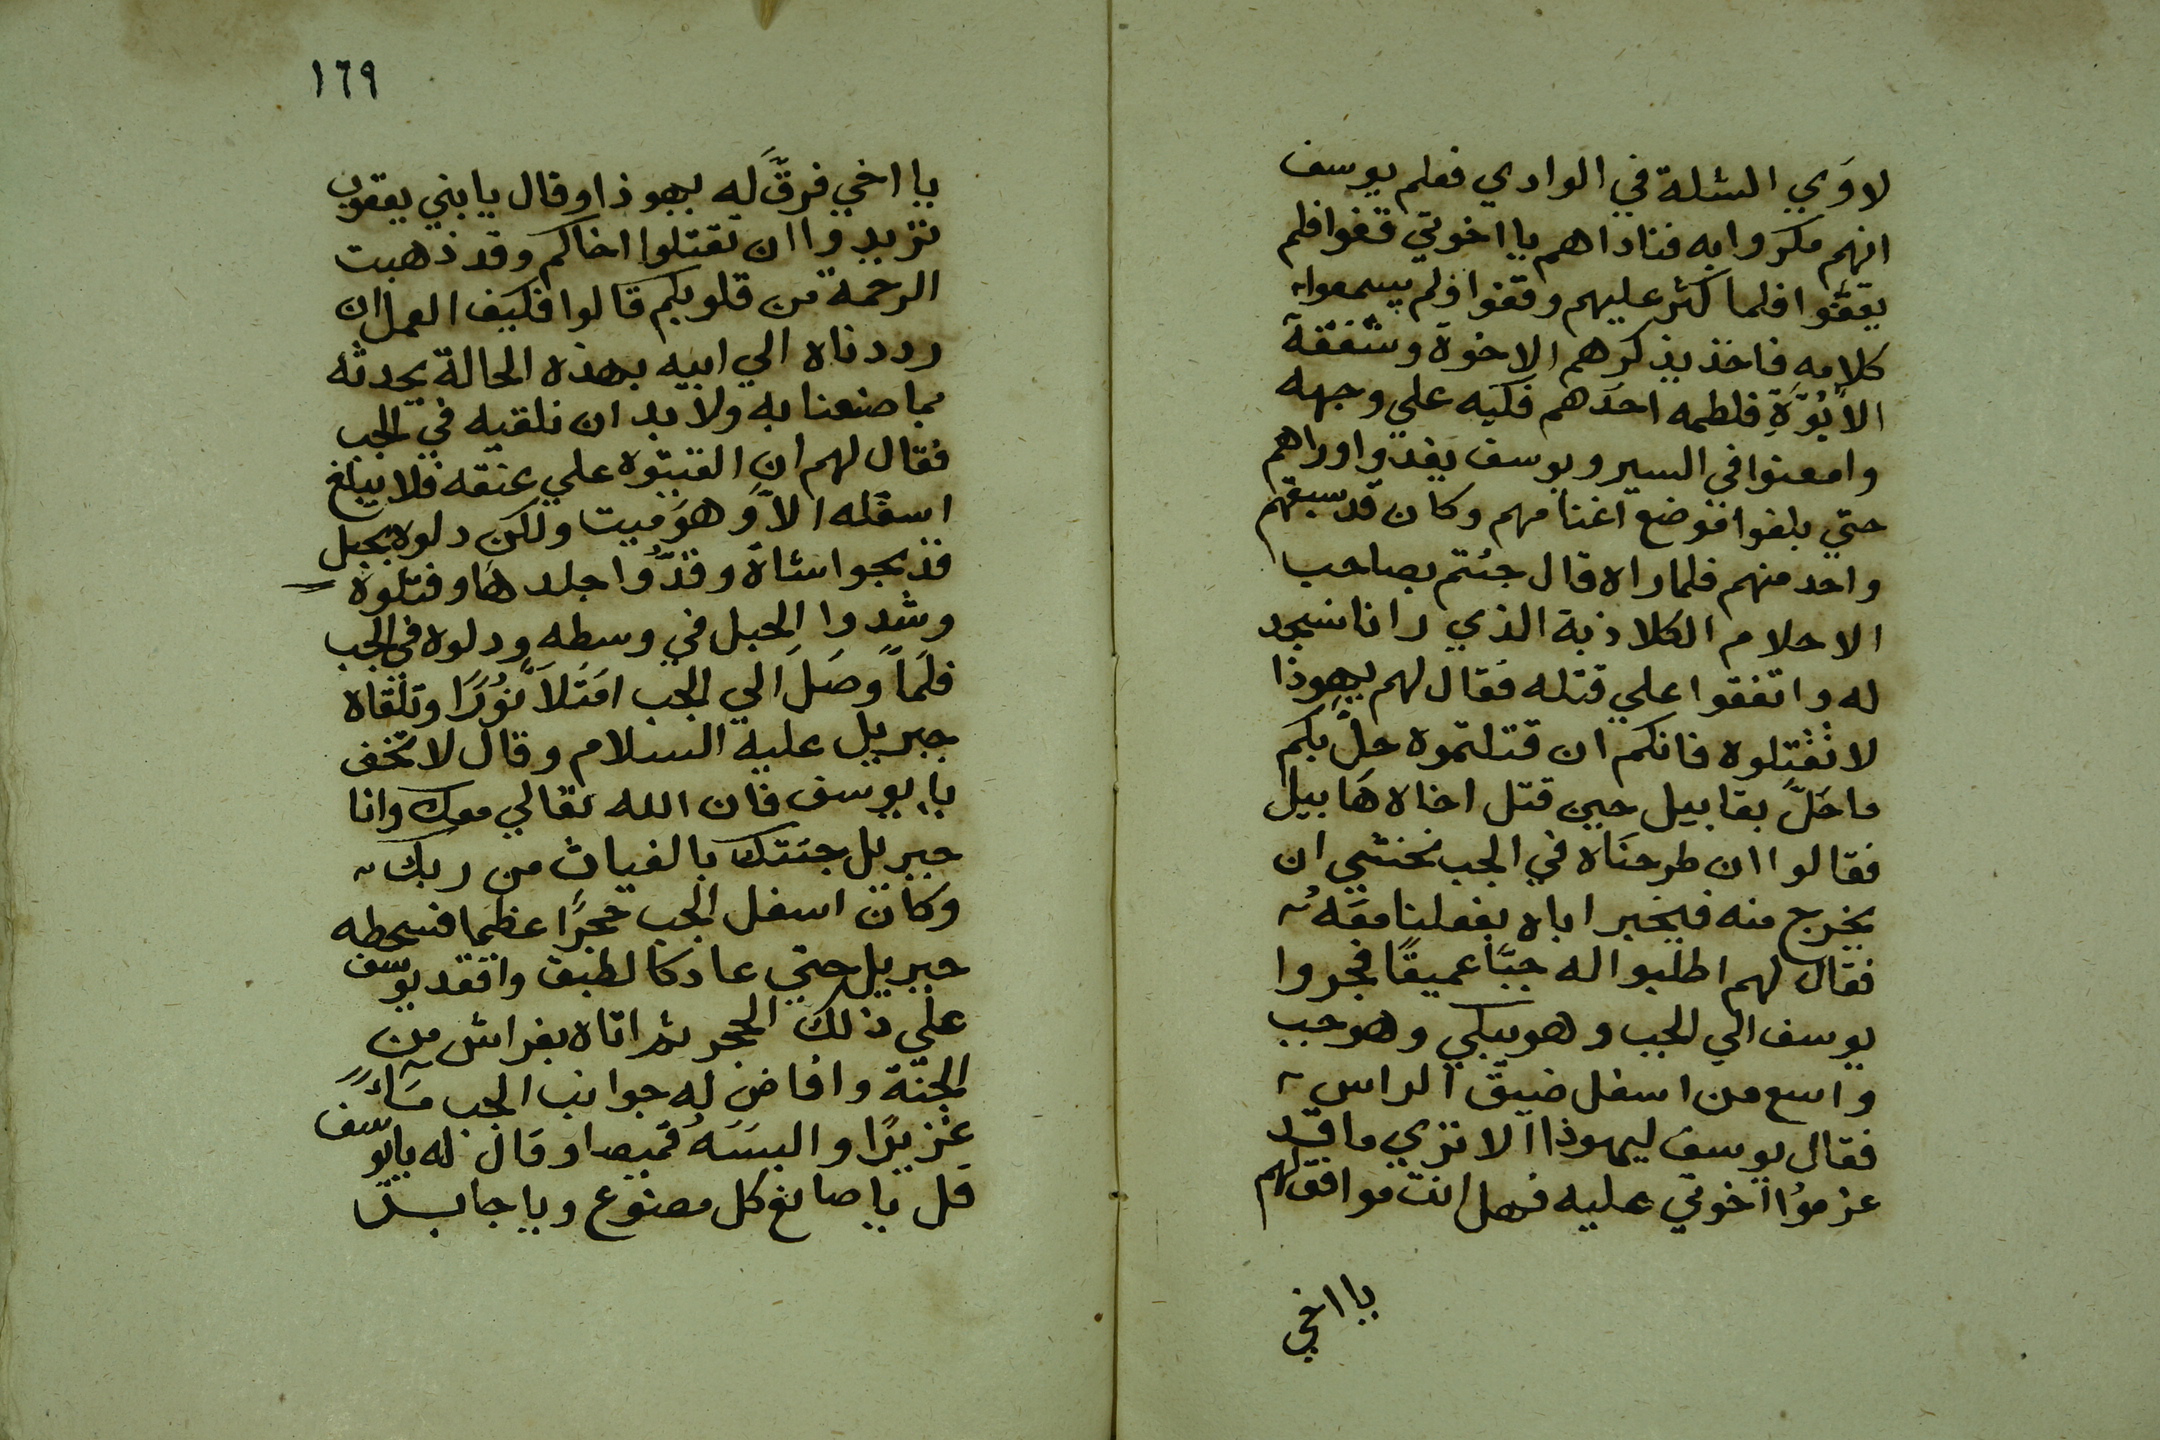 لاوَي الشلة في الوادي فعلم يوسف
انهم مكروا به فناداهم يا اخوتي قفوا فلم
يقفوا فلما كثر عليهم وقفوا ولم يسمعوا
كلامه فاخذ يذكرهم الاخوة وشفقة
الأُبُوّةِ فلطمه احدَهم فكبه علي وجهه
وامعنوا في السير ويوسف يغدوا وراهم
حتي بلغوا موضع اغنامهم وكان قد سبقهم
واحد منهم فلما راه قال جئتم بصاحب
الاحلام الكلاذبة الذي رانا نسجد
له واتفقوا علي قتله فقال لهم يهوذا
لا تقتلوه فانكم ان قتلتموه حلّ بكم
ما حَلّ بقابيل حين قتل اخاه هَابيل
فقالوا ان طرحنَاه في الجب نخشي ان
يخرج منه فيخبر اباه بفعلنا معَهُ
فقال لهم اطلبوا له جبًّا عميقًا فجروا
يوسف الي الجب وهو يبكي وهو جب
واسع من اسفل ضيق الراس
فقال يوسف ليهوذا الا تري ما قد
عزموُا اخوتي عليه فهل انت موافق لهم
يا اخي
١٦٩
يا اخي فرقّ له يهوذا وقال يا بني يعقوب
تريدوا ان تقتلوا اخاكم وقد ذهبت
الرحمة من قلوبكم قالوا فكيف العمل ان
رددناه الي ابيه بهذه الحالة يحدثه
بما صنعنا به ولا بد ان نلقيه في الجب
فقال لهم ان القيتوه علي عنقه فلا يبلغ
اسفله الاّ وَهوَ ميت ولكن دلوه بحبل
فذبحوا شاة وقدُّوا جلدهَا وفتلوه
وشدوا الحبل في وسطه ودلوه في الجب
فلمّا وصَلَ الي الجب امتلاَ نوُرًا وتلقاه
جبريل عليه السلام وقال لا تخف
يا يوسف فان الله تعالي معك وانا
جبريل جئتك بالغياث من ربك
وكان اسفل الجب حجرًا عظيما فسحطه
جبريل حتي عاد كالطبق واقعد يوسف
علي ذلك الحجر ثم اتاه بفراش من
الجنة وافاض له جوانب الجب مَآءً
غزيرًا والبسَهُ قميصا وقال له يا يوسف
قل يا صانع كل مصنوع ويا جابر